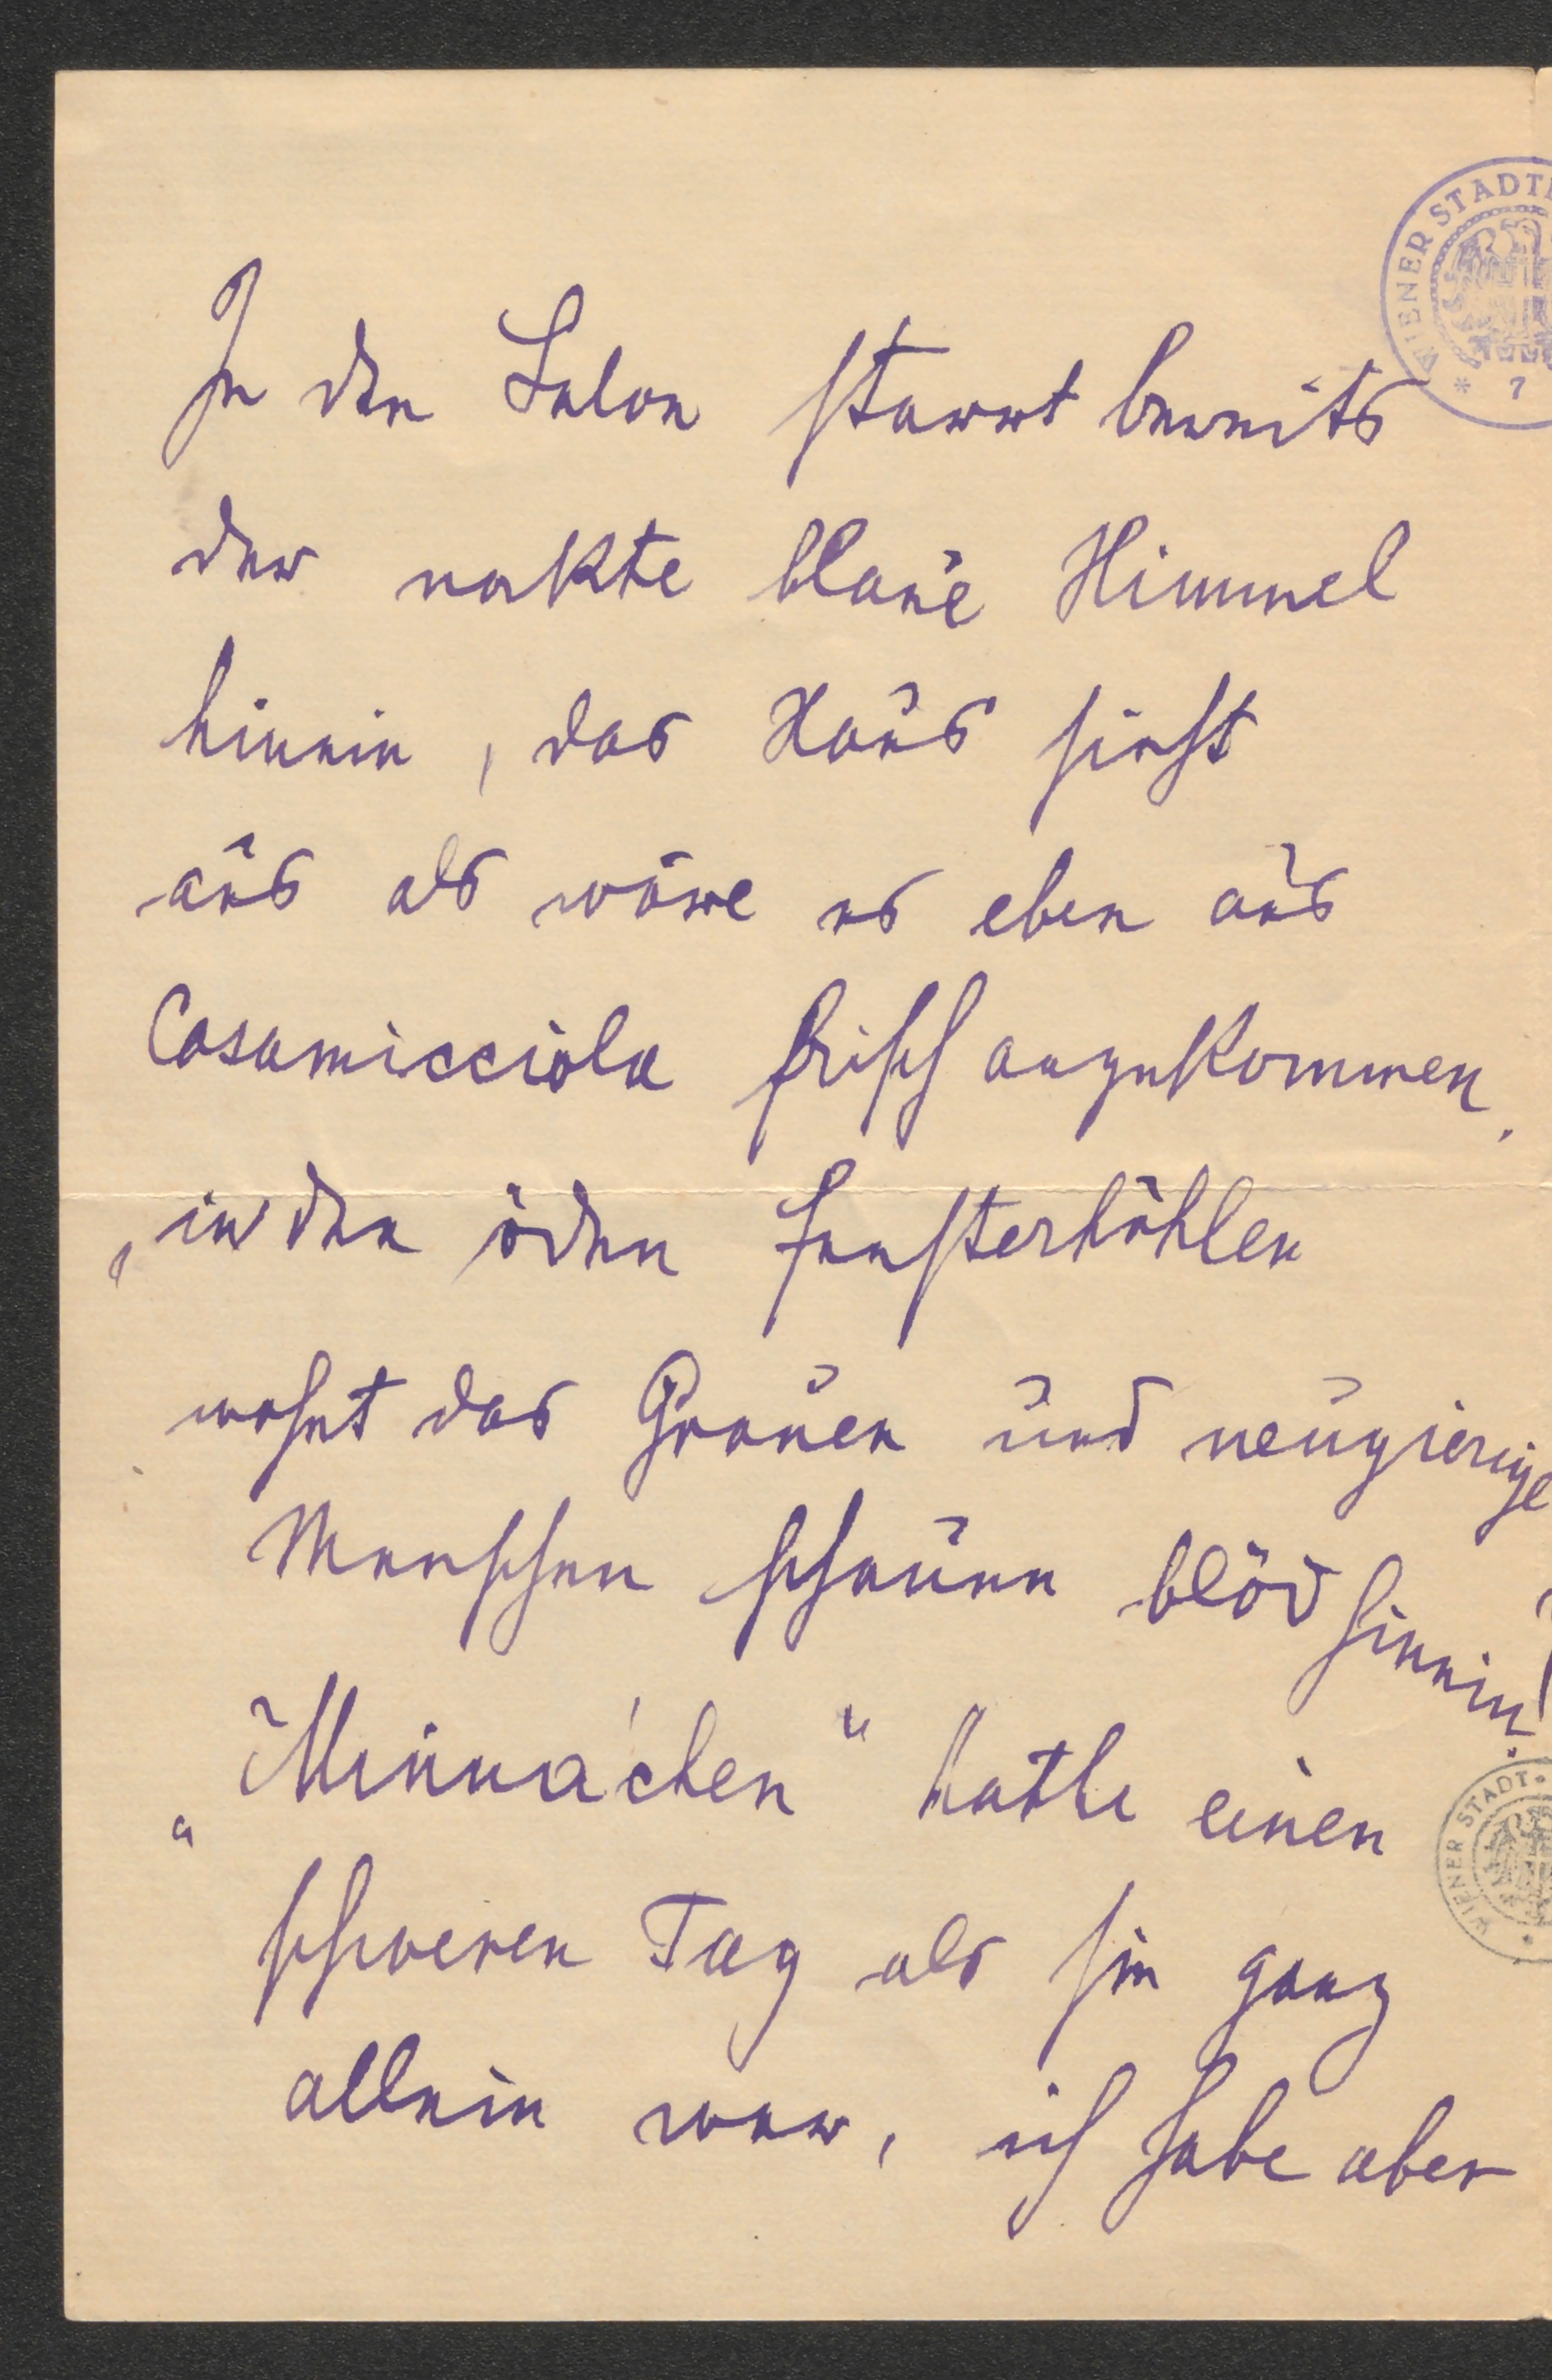 In den Salon starrt bereits
der nakte blaue Himmel
hinein, das Haus sieht
aus als wäre es eben aus
Casamicciola frisch angekommen,
in den öden Fensterhöhlen
wohnt das Grauen und neugierige
Menschen schauen blöd hinein!
„Minnachen“ hatte einen
schweren Tag als sie ganz
allein war, ich habe aber
WIENER STADT
* 7
WIENER STADT-